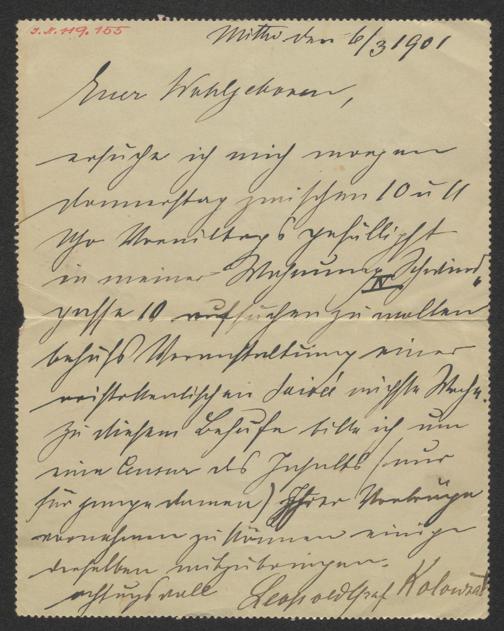 I.N. 119.155
Mittw den 6/3 1901
Euer Wohlgeboren,
ersuche ich mich morgen
Donnerstag zwischen 10 u 11
Uhr Vormittags gefälligst
in meiner Wohnung IV Schwind„
gasse 10 aufsuchen zu wollen
behufs Veranstaltung einer
aristokratischen Soirée nächste Woche.
Zu diesem Behufe bitte ich um
eine Censur des Inhalts (nur
für junge Damen) Ihrer Vorträge
vornehmen zu können einige
derselben mitzubringen.
achtungsvoll Leopold Graf Kolowrat